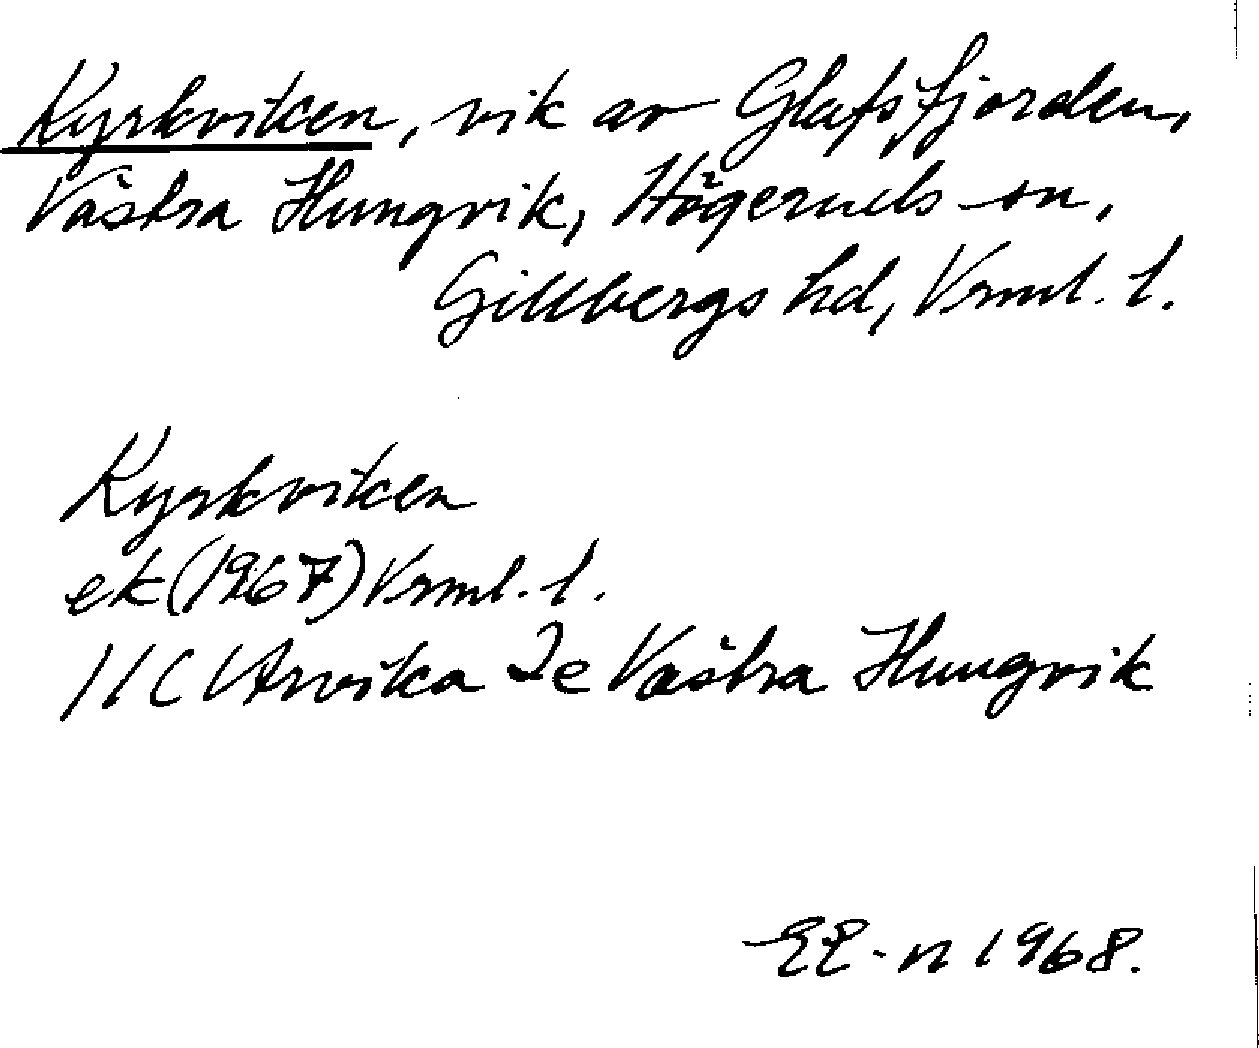 Kyrkviken, vik av Glafsfjorden,
Västra Hungvik, Högeruds sn,
Gillbergs hd, Vrml. l.
Kyrkviken
ek (1967) Vrml. l.
11C Arvika 2e Västra Hungvik
EE-n 1968.